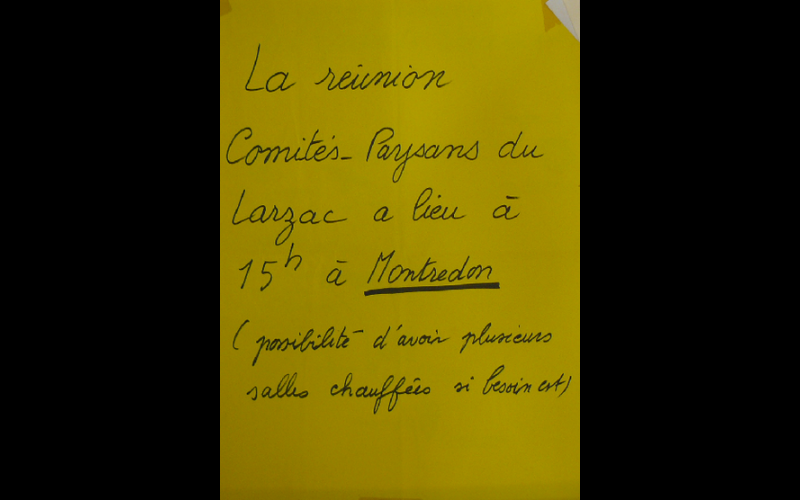 La réunion
Comités-Paysans du
Larzac a lieu à
15h à Montredon
(possibilité d'avoir plusieurs
salles chauffées si besoin est)